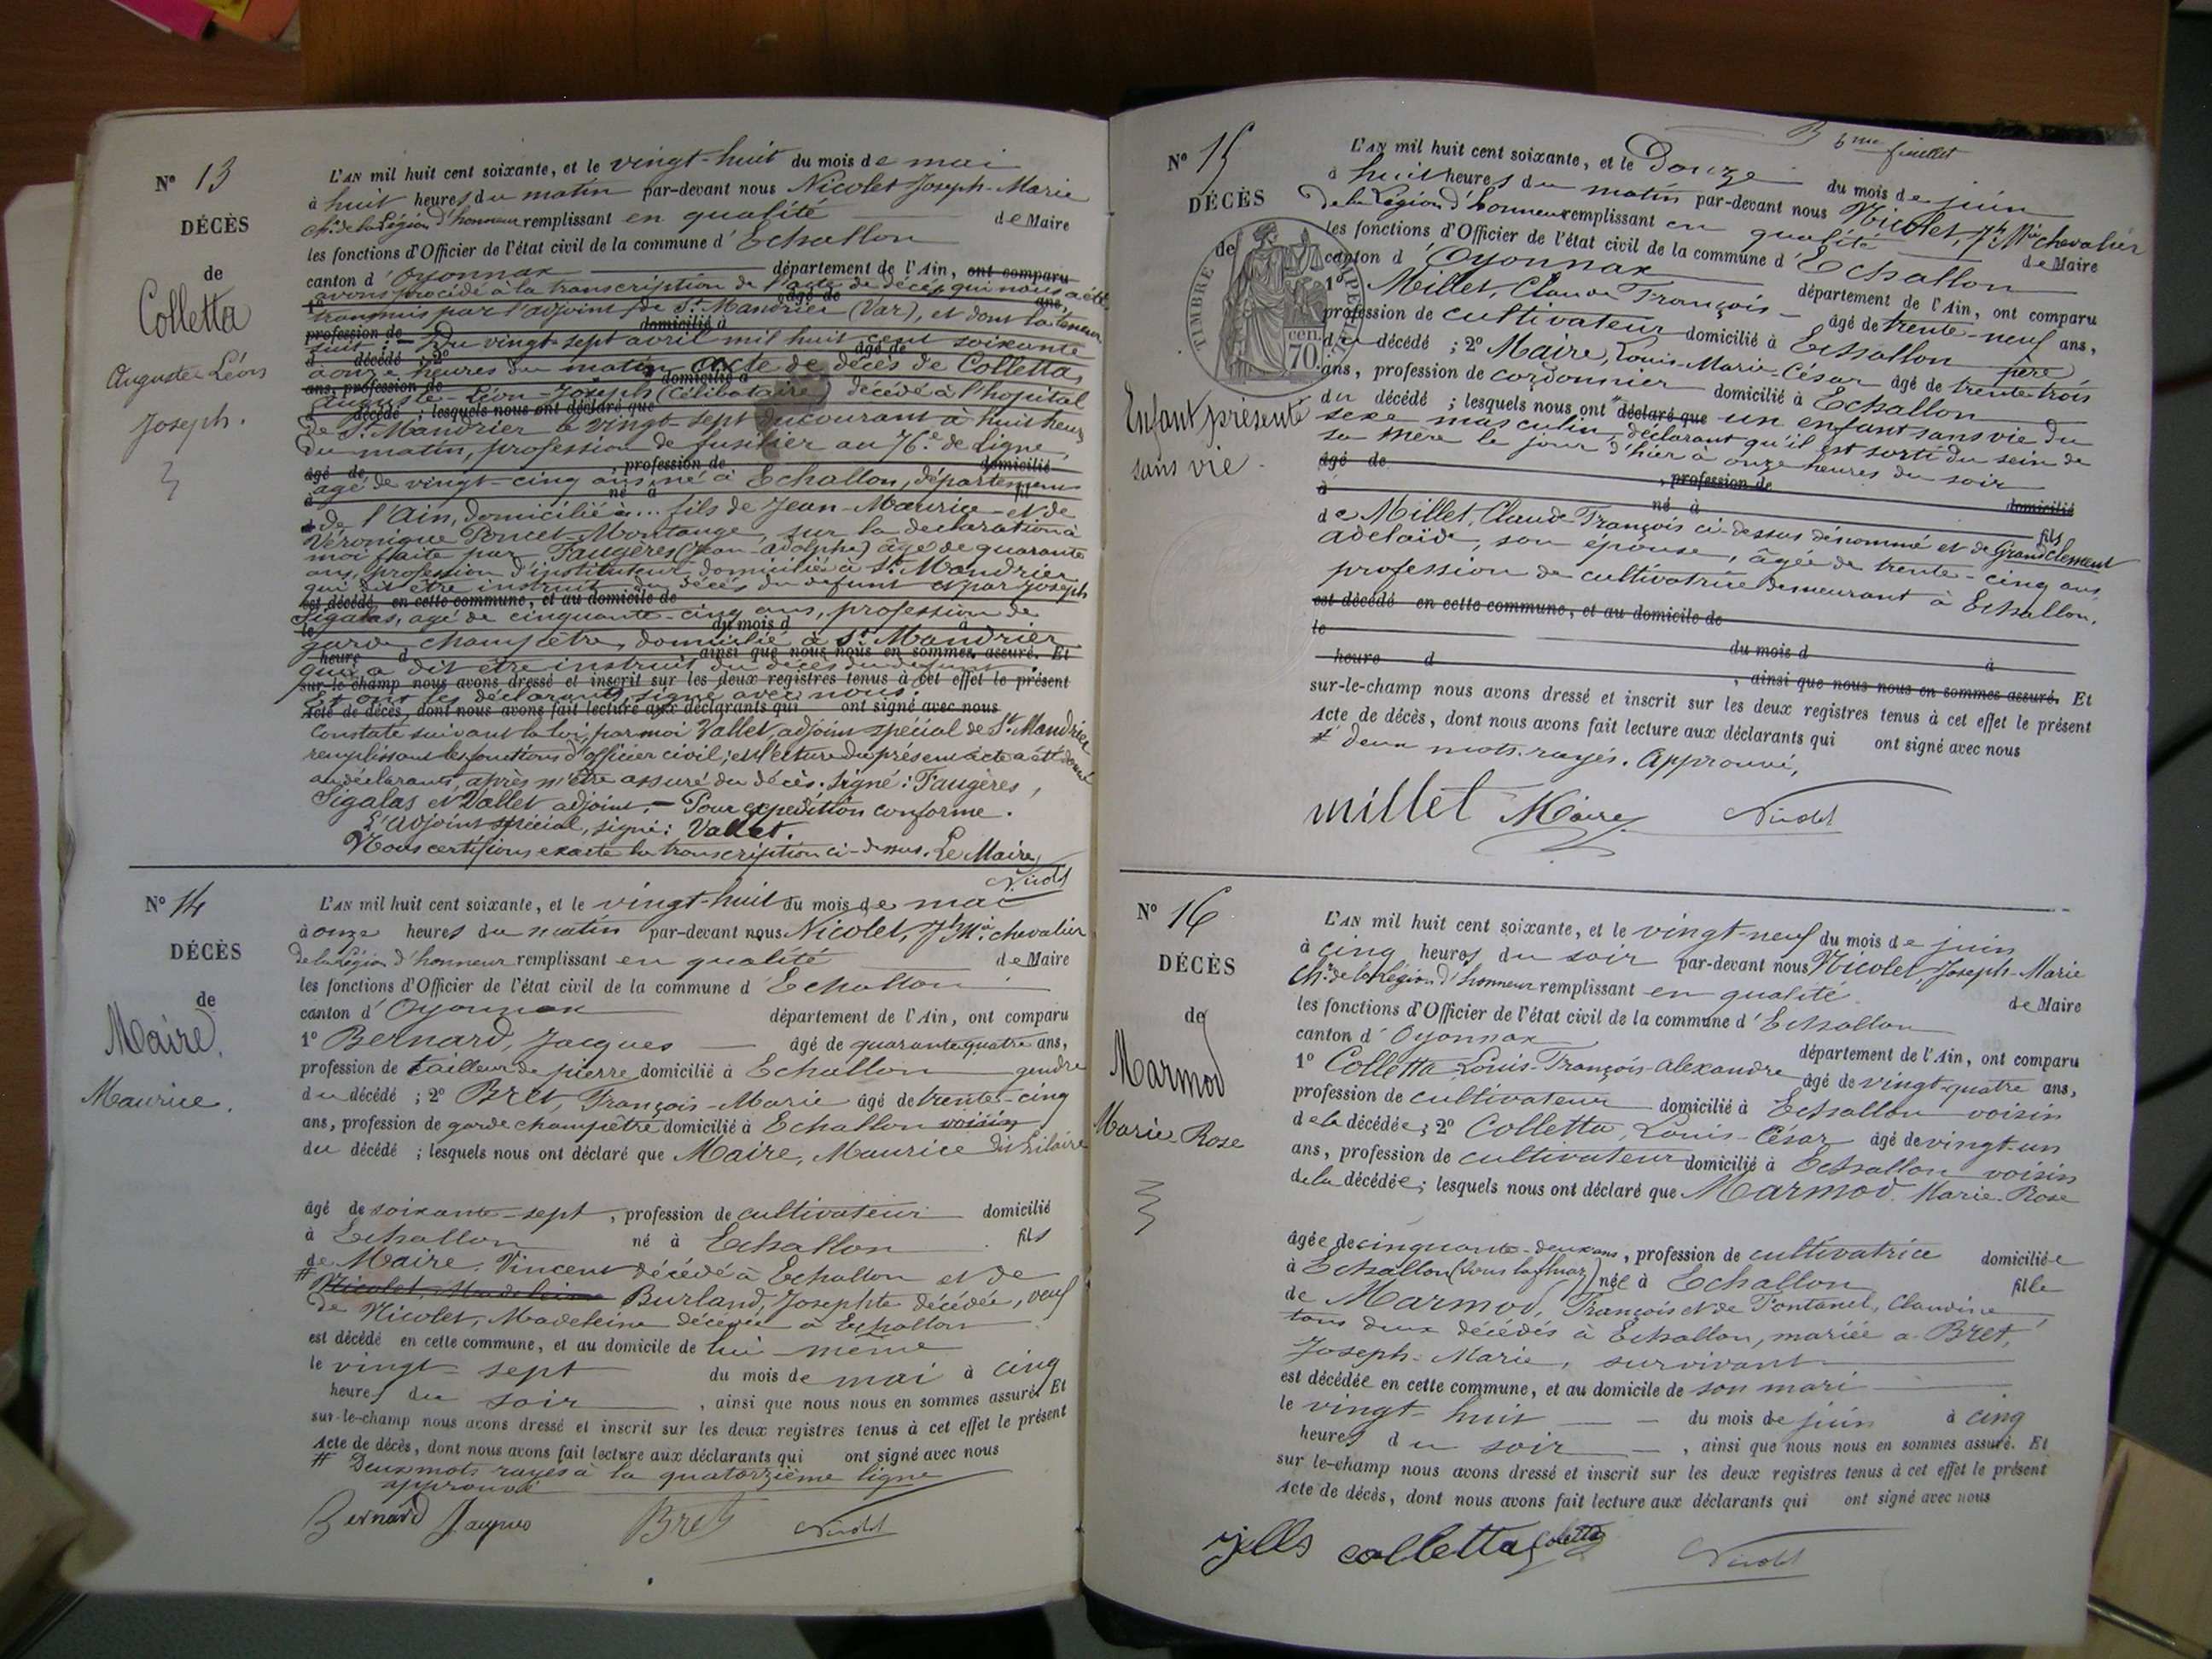 N° 13
DÉCÈS
de
Colletta
Auguste Léon
Joseph.
L'AN mil huit cent soixante, et le vingt-huit du mois de mai
à huit heures du matin par-devant nous Nicolet Joseph-Marie
Ch.er de la Légion d'honneur remplissant en qualité de Maire
les fonctions d'Officier de l'état civil de la commune d'Echallon
canton d'Oyonnax département de l'Ain, ont comparu
avons procédé à la transcription de l'acte de décès qui nous a été
transmis par l'adjoint de St Mandrier (Var), et dont la teneur
suit : Du vingt-sept avril mil huit cent soixante
à onze heures du matin, acte de décès de Colletta,
Auguste-Léon-Joseph (Célibataire) décédé à l'hopital
de St Mandrier le vingt-sept du courant à huit heures
du matin, profession de fusilier au 76e de Ligne,
agé de vingt-cinq ans, né à Echallon, département
de l'Ain, domicilié à... fils de Jean-Maurice et de
Véronique Poncet-Montange, sur la déclaration à
moi faite par Faugères (Jean-adolphe) âgé de quarante
ans, profession d'instituteur domicilié à St Mandrier
qui dit être instruit du décès du défunt et par Joseph
Sigalas, agé de cinquante-cinq ans, profession de
garde champêtre, domicilié à St Mandrier
qui a dit être instruit du décès du défunt
et ont les déclarants signé avec nous.
Constaté suivant la loi, par moi Vallet, adjoint spécial de St Mandrier
remplissant les fonctions d'officier civil; et lecture du présent acte a été donné
au déclarants, après m'être assuré du décès. Signé : Faugères,
Sigalas et Vallet adjoint. – Pour expédition conforme.
L'Adjoint spécial, signé : Vallet.
Nous certifions exacte la transcription ci-dessus. Le Maire,
Nicolet
N° 14
DÉCÈS
de
Maire.
Maurice.
L'AN mil huit cent soixante, et le vingt-huit du mois de mai
à onze heures du matin par-devant nous Nicolet, Jh Mie chevalier
de la Légion d'honneur remplissant en qualité de Maire
les fonctions d'Officier de l'état civil de la commune d'Echallon
canton d'Oyonnax département de l'Ain, ont comparu
1° Bernard, Jacques âgé de quarante quatre ans,
profession de tailleur de pierre domicilié à Echallon gendre
du décédé ; 2° Bret, François-Marie âgé de trente-cinq
ans, profession de garde champêtre domicilié à Echallon voisin
du décédé ; lesquels nous ont déclaré que Maire, Maurice dit hilaire
âgé de soixante-sept, profession de cultivateur domicilié
à Echallon né à Echallon fils
de Maire, Vincent décédé à Echallon et de
# Nicolet, Madeleine Burland, Josephte décédée, veuf
de Nicolet, Madeleine décédée à Echallon
est décédé en cette commune, et au domicile de lui-même
le vingt-sept du mois de mai à cinq
heures du soir, ainsi que nous nous en sommes assuré. Et
sur-le-champ nous avons dressé et inscrit sur les deux registres tenus à cet effet le présent
Acte de décès, dont nous avons fait lecture aux déclarants qui ont signé avec nous
# Deux mots rayés à la quatorzième ligne
approuvé
Bernard Jacques Bret Nicolet
B 6me feuillet
N° 15
DÉCÈS
de
TIMBRE IMPERIAL
70 cen.
Enfant présenté
sans vie.
L'AN mil huit cent soixante, et le Douze du mois de juin
à huit heures du matin par-devant nous Nicolet, Jh Mie chevalier
de la Légion d'honneur remplissant en qualité de Maire
les fonctions d'Officier de l'état civil de la commune d'Echallon
canton d'Oyonnax département de l'Ain, ont comparu
1° Millet, Claude François âgé de trente-neuf ans,
profession de cultivateur domicilié à Echallon père
du décédé ; 2° Maire, Louis-Marie-César âgé de trente trois
ans, profession de cordonnier domicilié à Echallon
du décédé ; lesquels nous ont # déclaré que un enfant sans vie du
sexe masculin, déclarant qu'il est sorti du sein de
sa mère le jour d'hier à onze heures du soir
âgé de , profession de domicilié
à né à fils
de Millet, Claude François ci-dessus dénommé et de Grandclement
adelaïde, son épouse, âgée de trente-cinq ans
profession de cultivatrice demeurant à Echallon.
est décédé en cette commune, et au domicile de
le du mois d à
heure d , ainsi que nous nous en sommes assuré. Et
sur-le-champ nous avons dressé et inscrit sur les deux registres tenus à cet effet le présent
Acte de décès, dont nous avons fait lecture aux déclarants qui ont signé avec nous
# deux mots rayés. Approuvé,
millet Maire Nicolet
N° 16
DÉCÈS
de
Marmod
Marie Rose
L'AN mil huit cent soixante, et le vingt-neuf du mois de juin
à cinq heures du soir par-devant nous Nicolet, Joseph-Marie
Ch.er de la Légion d'honneur remplissant en qualité de Maire
les fonctions d'Officier de l'état civil de la commune d'Echallon
canton d'Oyonnax département de l'Ain, ont comparu
1° Colletta Louis-François-alexandre âgé de vingt-quatre ans,
profession de cultivateur domicilié à Echallon voisin
de la décédée ; 2° Colletta, Louis-César âgé de vingt-un
ans, profession de cultivateur domicilié à Echallon voisin
de la décédée ; lesquels nous ont déclaré que Marmod. Marie-Rose
âgée de cinquante-deux ans, profession de cultivatrice domiciliée
à Echallon née à Echallon fille
de Marmod, François et de Fontanel, Claudine
tous deux décédés à Echallon, mariée a Bret,
Joseph-Marie, survivant
est décédée en cette commune, et au domicile de son mari
le vingt-huit du mois de juin à cinq
heures du soir, ainsi que nous nous en sommes assuré. Et
sur le-champ nous avons dressé et inscrit sur les deux registres tenus à cet effet le présent
Acte de décès, dont nous avons fait lecture aux déclarants qui ont signé avec nous
colletta Coletta Nicolet